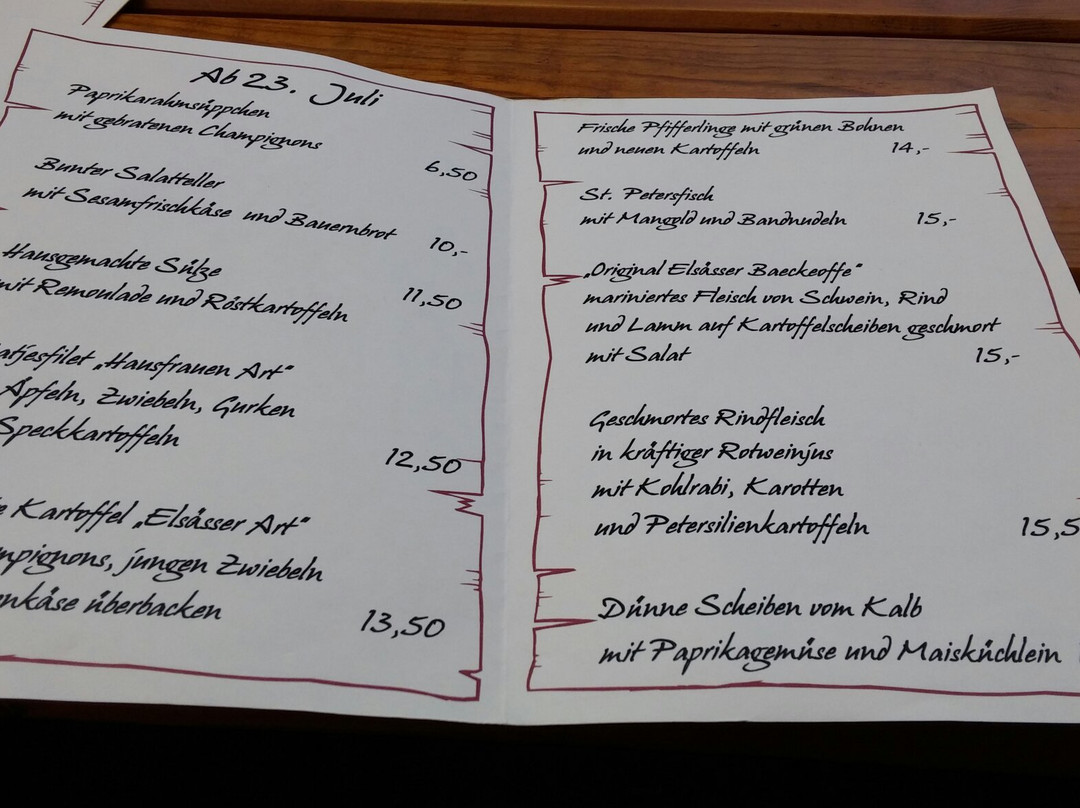 Ab 23. Juli
Paprikarahmsüppchen
mit gebratenen Champignons
6,50
Bunter Salatteller
mit Sesamfrischkäse und Bauernbrot
10,-
Hausgemachte Sülze
mit Remoulade und Röstkartoffeln
11,50
„Hausfrauen Art“
Äpfeln, Zwiebeln, Gurken
Speckkartoffeln
12,50
Kartoffel „Elsässer Art“
jungen Zwiebeln
überbacken
13,50
Frische Pfifferlinge mit grünen Bohnen
und neuen Kartoffeln 14,-
St. Petersfisch
mit Mangold und Bandnudeln 15,-
„Original Elsässer Baeckeoffe“
mariniertes Fleisch von Schwein, Rind
und Lamm auf Kartoffelscheiben geschmort
mit Salat 15,-
Geschmortes Rindfleisch
in kräftiger Rotweinjus
mit Kohlrabi, Karotten
und Petersilienkartoffeln 15,5
Dünne Scheiben vom Kalb
mit Paprikagemüse und Maisküchlein